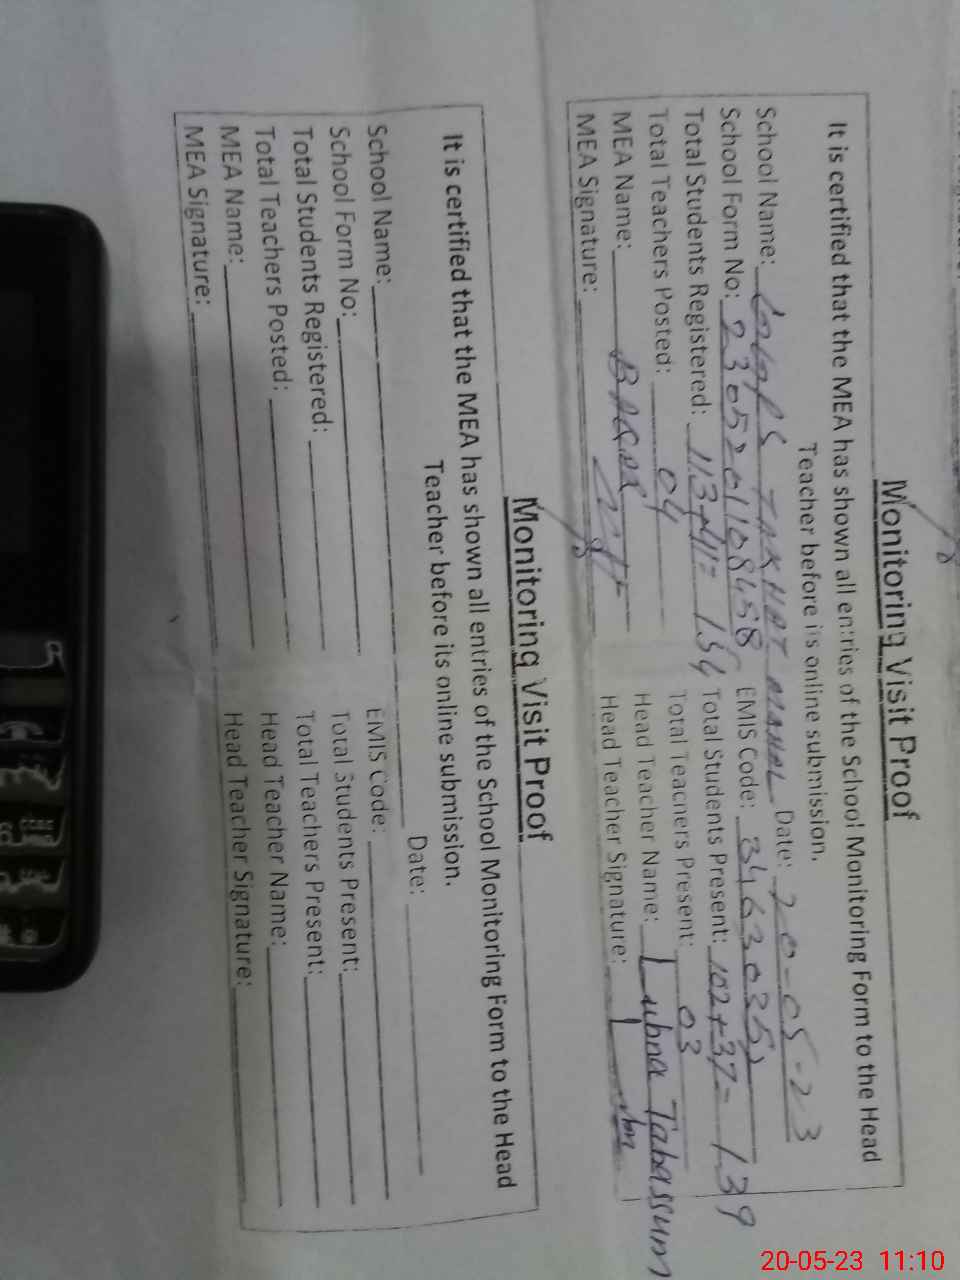 Monitoring Visit Proof
It is certified that the MEA has shown all entries of the School Monitoring Form to the Head
Teacher before its online submission.
School Name: TAKHAT MAHAL Date: 20-05-23
School Form No: EMIS Code:
Total Students Registered: Total Students Present: 102+37= 139
Total Teachers Posted: 04 Total Teachers Present: 03
MEA Name: Head Teacher Name: Lubna Tabassum
MEA Signature: Head Teacher Signature:
Monitoring Visit Proof
It is certified that the MEA has shown all entries of the School Monitoring Form to the Head
Teacher before its online submission.
School Name: Date:
School Form No: EMIS Code:
Total Students Registered: Total Students Present:
Total Teachers Posted: Total Teachers Present:
MEA Name: Head Teacher Name:
MEA Signature: Head Teacher Signature:
20-05-23 11:10